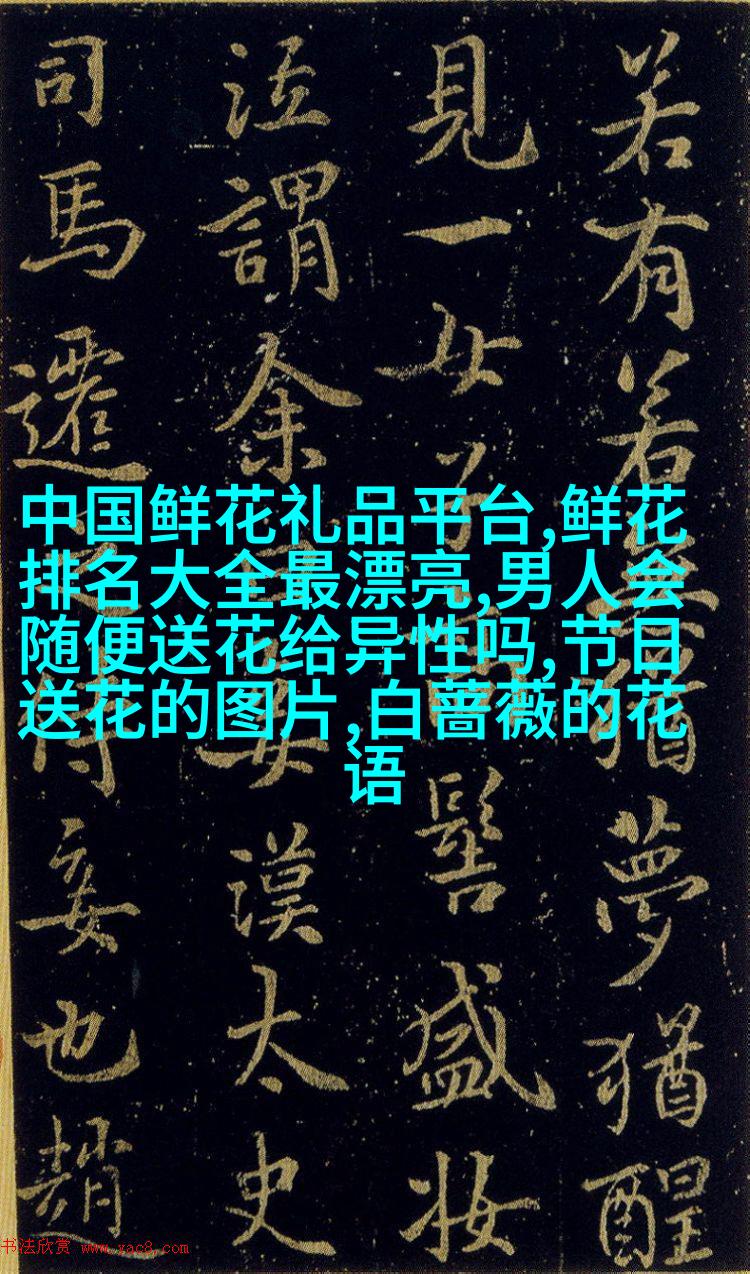 若有若無猶夢猶醒
見一女子高髻盛妝
泣謂余曰妾漢太史
司馬遷之侍妾也趙
中国鲜花礼品平台,鲜花
排名大全最漂亮,男人会
随便送花给异性吗,节日
送花的图片,白蔷薇的花
语
书法欣赏 www.yac8.com